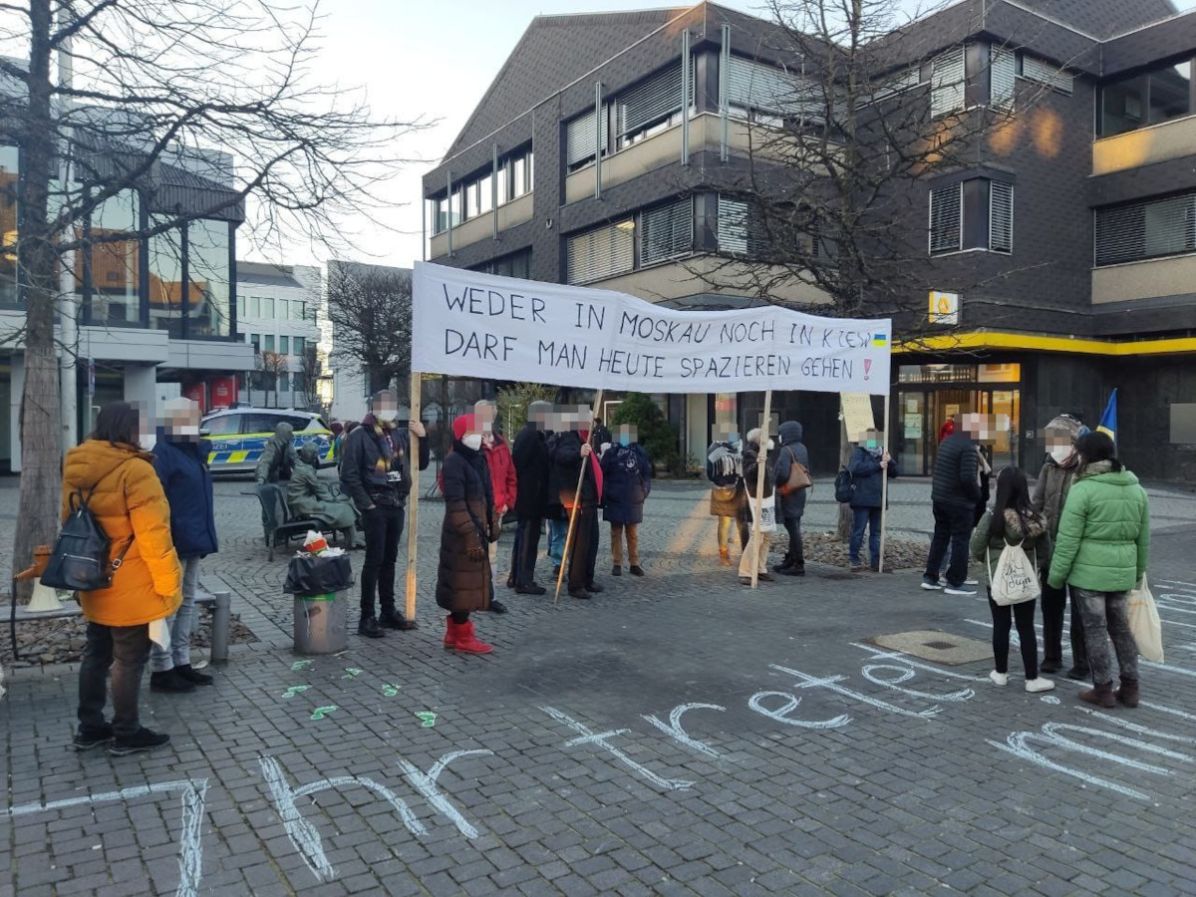 WEDER IN MOSKAU NOCH IN KIEW
DARF MAN HEUTE SPAZIEREN GEHEN !
Ihr tretet